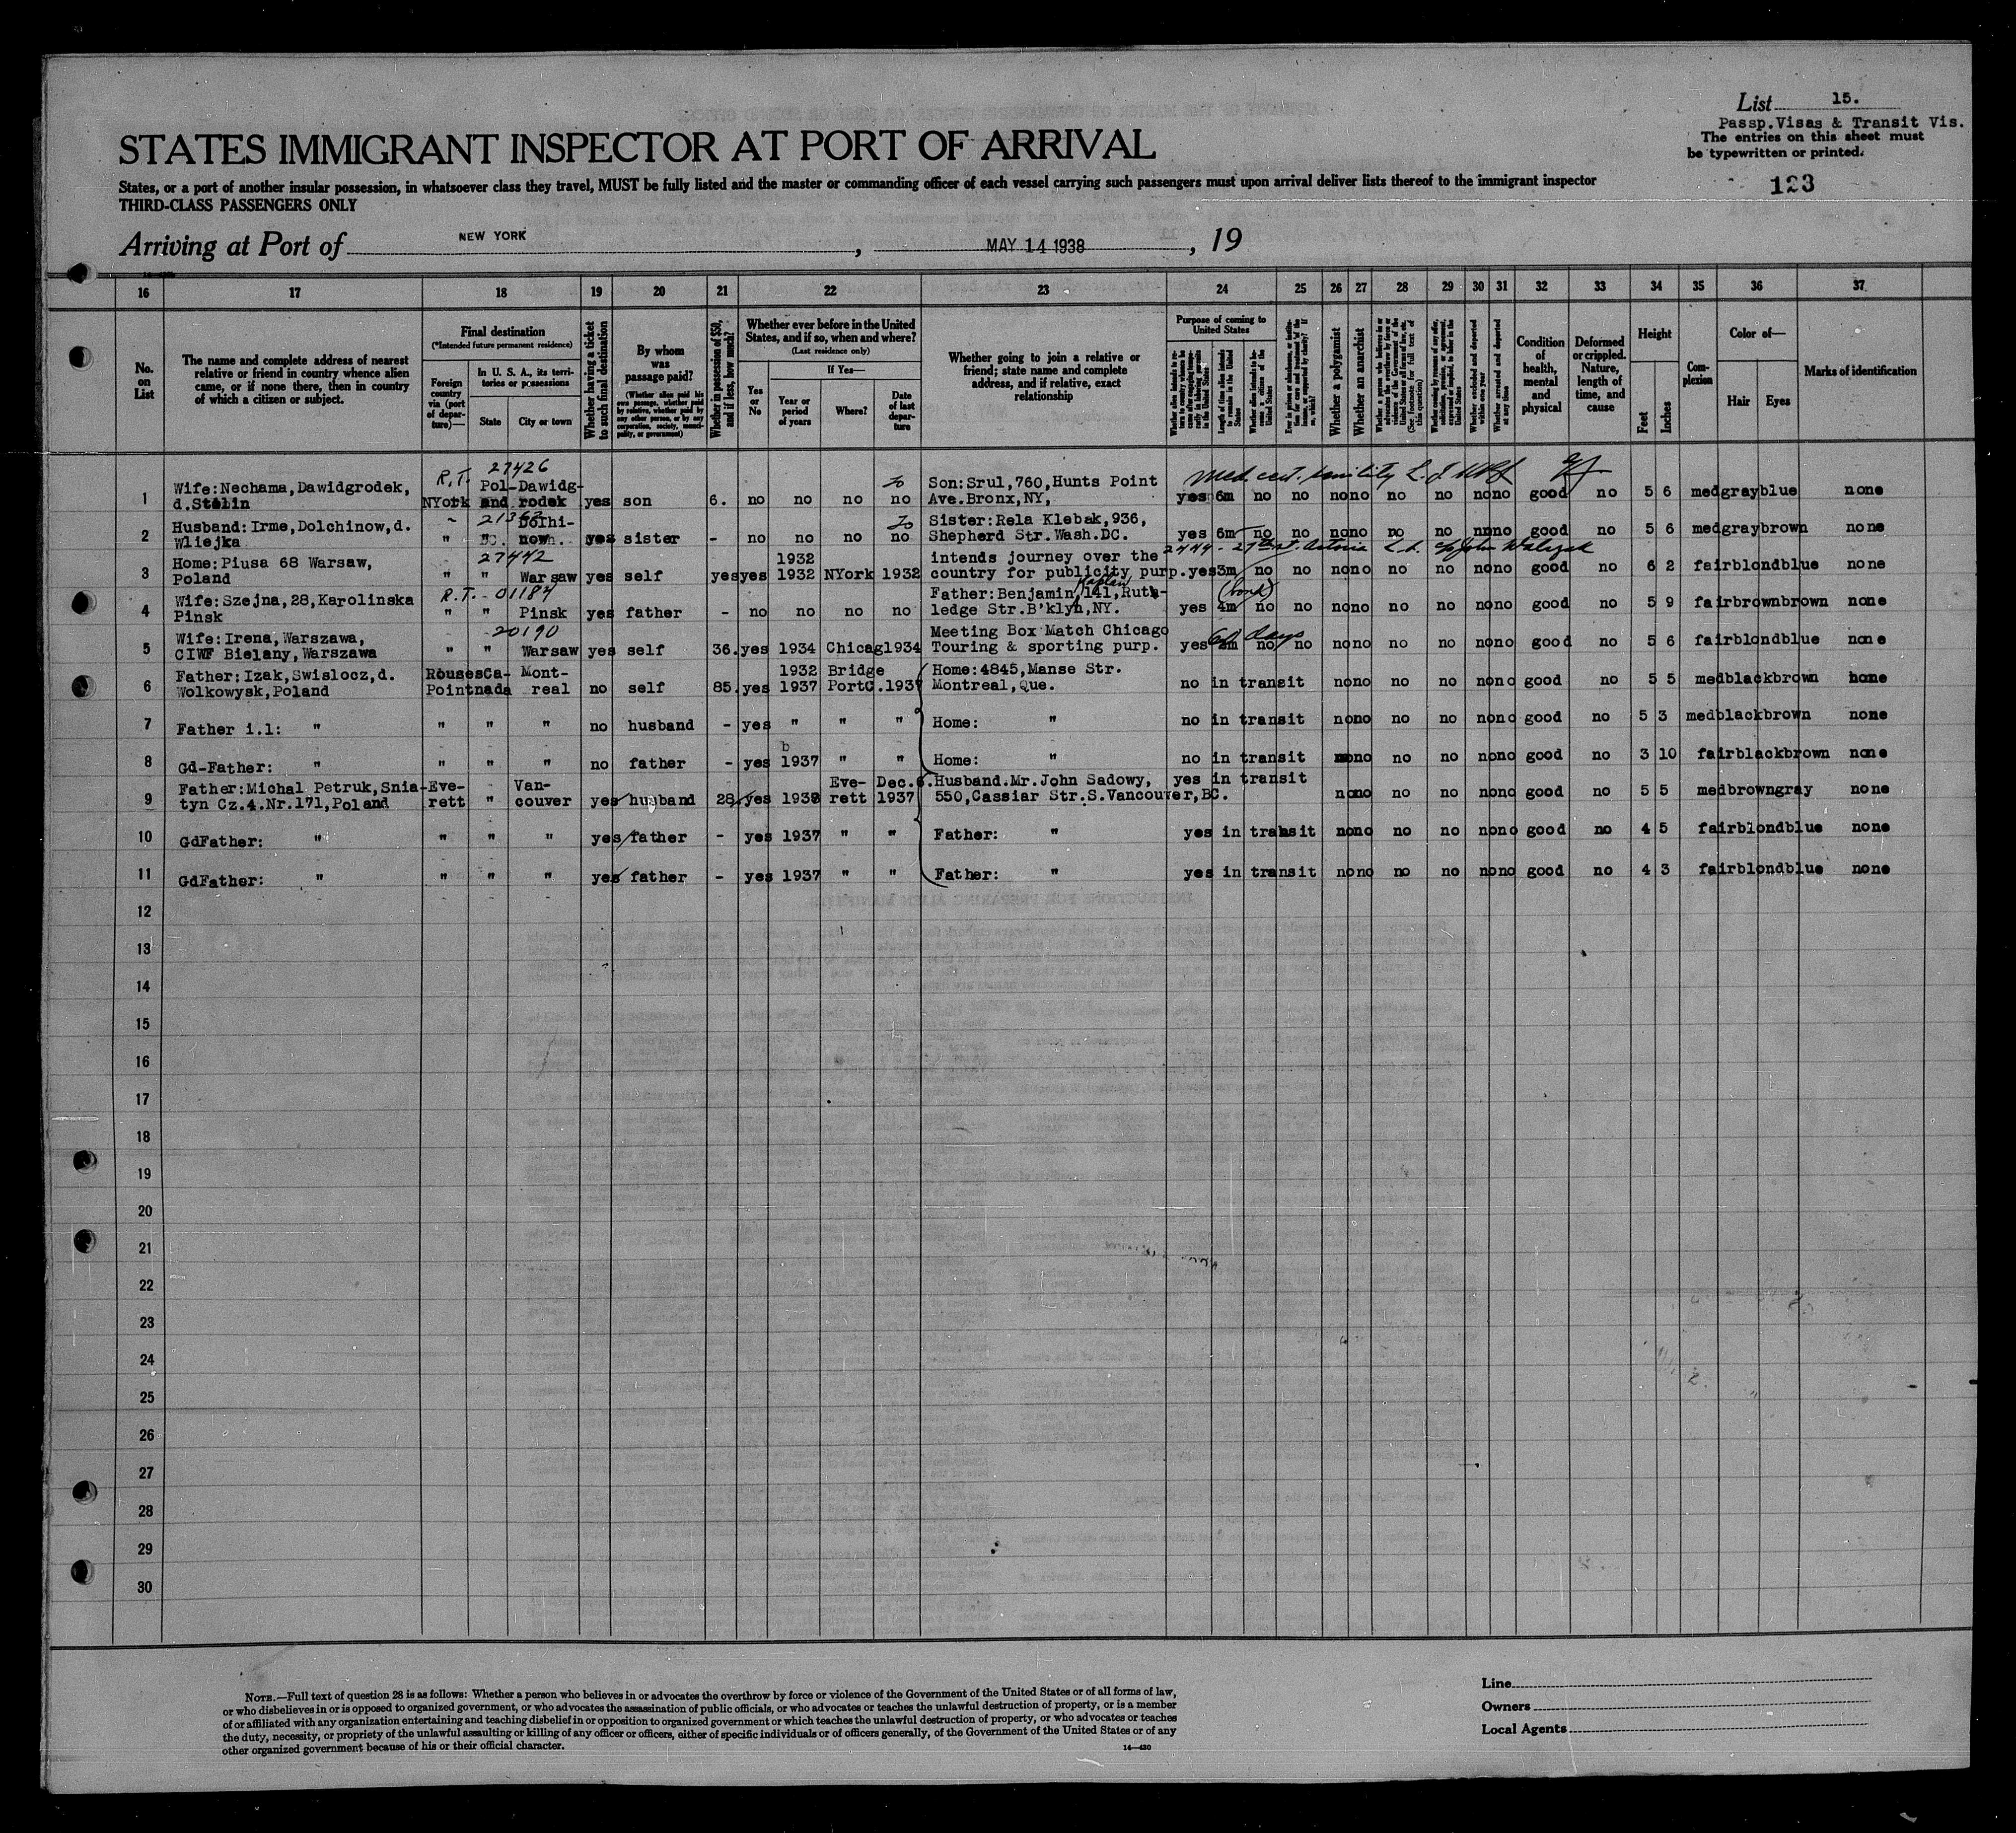 List 15.
Passp.Visas & Transit Vis.
The entries on this sheet must
be typewritten or printed.
123
STATES IMMIGRANT INSPECTOR AT PORT OF ARRIVAL
States, or a port of another insular possession, in whatsoever class they travel, MUST be fully listed and the master or commanding officer of each vessel carrying such passengers must upon arrival deliver lists thereof to the immigrant inspector
THIRD-CLASS PASSENGERS ONLY
Arriving at Port of NEW YORK, MAY 14 1938, 19
16 17 18 19 20 21 22 23 24 25 26 27 28 29 30 31 32 33 34 35 36 37
No. on List
The name and complete address of nearest relative or friend in country whence alien came, or if none there, then in country of which a citizen or subject.
Final destination
(*Intended future permanent residence)
Foreign country via (port of departure)—
In U. S. A., its territories or possessions
State
City or town
Whether having a ticket to such final destination
By whom was passage paid?
(Whether alien paid his own passage, whether paid by relative, whether paid by any other person, or by any corporation, society, municipality, or government)
Whether in possession of $50, and if less, how much?
Whether ever before in the United States, and if so, when and where?
(Last residence only)
Yes or No
If Yes—
Year or period of years
Where?
Date of last departure
Whether going to join a relative or friend; state name and complete address, and if relative, exact relationship
Purpose of coming to United States
Length of time alien intends to remain in the United States
Whether alien intends to become a citizen of the United States
Whether a polygamist
Whether an anarchist
Whether excluded and deported within one year
Whether arrested and deported at any time
Condition of health, mental and physical
Deformed or crippled. Nature, length of time, and cause
Height
Feet
Inches
Complexion
Color of—
Hair
Eyes
Marks of identification
R.T. 27426
1 Wife:Nechama,Dawidgrodek, d.Stolin NYork Pol-and Dawidg-rodek yes son 6. no no no no Son:Srul,760,Hunts Point Ave.Bronx,NY, yes 6m no no no no no no no no good no 5 6 med gray blue none
Med cert. senility
2 Husband:Irme,Dolchinow,d. Wliejka " DC. Dolhi-nowh. yes sister - no no no no Sister:Rela Klebak,936, Shepherd Str.Wash.DC. yes 6m no no no no no no no no good no 5 6 med gray brown none
27442
3 Home:Piusa 68 Warsaw, Poland " " Warsaw yes self yes yes 1932 1932 NYork 1932 intends journey over the country for publicity purp. yes 3m no no no no no no no no good no 6 2 fair blond blue none
R.T. - 01184
4 Wife:Szejna,28,Karolinska Pinsk " " Pinsk yes father - no no no no Father:Benjamin Kaplan,141,Rut-ledge Str.B'klyn,NY. yes 4m (bond) no no no no no no no no good no 5 9 fair brown brown none
20190
5 Wife:Irena,Warszawa, CIWF Bielany,Warszawa " " Warsaw yes self 36. yes 1934 Chicag 1934 Meeting Box Match Chicago Touring & sporting purp. yes 60 days no no no no no no no no good no 5 6 fair blond blue none
6 Father:Izak,Swislocz,d. Wolkowysk,Poland Rouses Point Ca-nada Mont-real no self 85. yes 1932 1937 Bridge PortC. 1937 Home:4845,Manse Str. Montreal,Que. no in transit no no no no no no good no 5 5 med black brown none
7 Father i.l: " " " " no husband - yes " " " Home: " no in transit no no no no no no good no 5 3 med black brown none
8 Gd-Father: " " " " no father - yes 1937 " " Home: " no in transit no no no no no no good no 3 10 fair black brown none
9 Father:Michal Petruk,Snia-tyn Cz.4.Nr.171,Poland Eve-rett " Van-couver yes husband 28 yes 1938 Eve-rett Dec.6. 1937 Husband.Mr.John Sadowy, 550,Cassiar Str.S.Vancouver,BC. yes in transit no no no no no no good no 5 5 med brown gray none
10 GdFather: " " " " yes father - yes 1937 " " Father: " yes in transit no no no no no no good no 4 5 fair blond blue none
11 GdFather: " " " " yes father - yes 1937 " " Father: " yes in transit no no no no no no good no 4 3 fair blond blue none
12
13
14
15
16
17
18
19
20
21
22
23
24
25
26
27
28
29
30
NOTE.—Full text of question 28 is as follows: Whether a person who believes in or advocates the overthrow by force or violence of the Government of the United States or of all forms of law,
or who disbelieves in or is opposed to organized government, or who advocates the assassination of public officials, or who advocates or teaches the unlawful destruction of property, or is a member
of or affiliated with any organization entertaining and teaching disbelief in or opposition to organized government or which teaches the unlawful destruction of property, or who advocates or teaches
the duty, necessity, or propriety of the unlawful assaulting or killing of any officer or officers, either of specific individuals or of officers generally, of the Government of the United States or of any
other organized government because of his or their official character.
14—430
Line
Owners
Local Agents